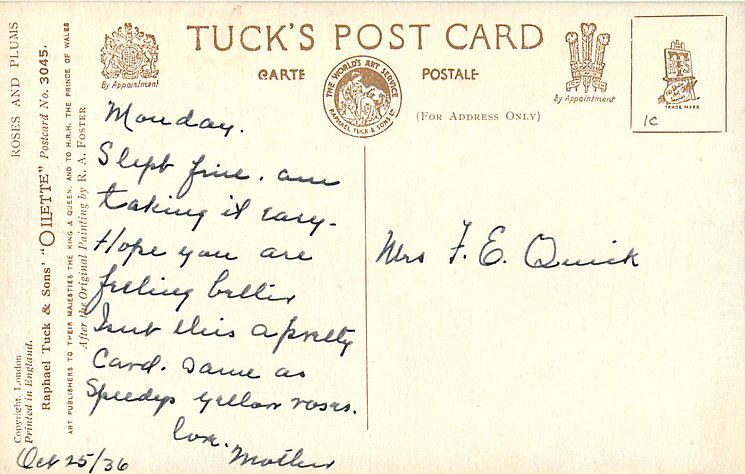 ROSES AND PLUMS
Copyright. London
Printed in England.
Raphael Tuck & Sons' "OILETTE" Postcard No. 3045.
ART PUBLISHERS TO THEIR MAJESTIES THE KING & QUEEN, AND TO H.R.H. THE PRINCE OF WALES
After the Original Painting by R. A. FOSTER
TUCK'S POST CARD
CARTE POSTALE
By Appointment
THE WORLD'S ART SERVICE
RAPHAEL TUCK & SONS LD
(FOR ADDRESS ONLY)
By Appointment
TRADE MARK
1c
Monday.
Slept fine. am
taking it easy-
Hope you are
feeling better
Isnt this a pretty
Card. Same as
Speedys yellow roses.
Love.
Mother
Oct 25/36
Mrs F. E. Quick